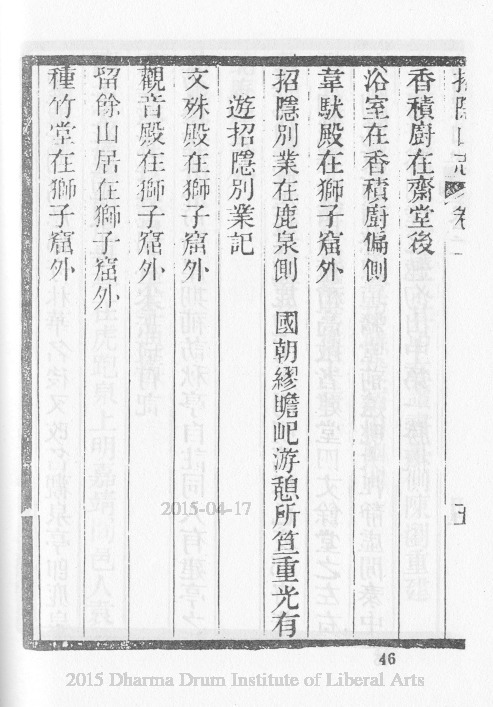 招隱山志 卷二
五
香積廚在齋堂後
浴室在香積廚偏側
韋馱殿在獅子窟外
招隱別業在鹿泉側 國朝繆瞻屺游憩所笪重光有
遊招隱別業記
文殊殿在獅子窟外
觀音殿在獅子窟外
留餘山居在獅子窟外
種竹堂在獅子窟外
46
2015-04-17
2015 Dharma Drum Institute of Liberal Arts